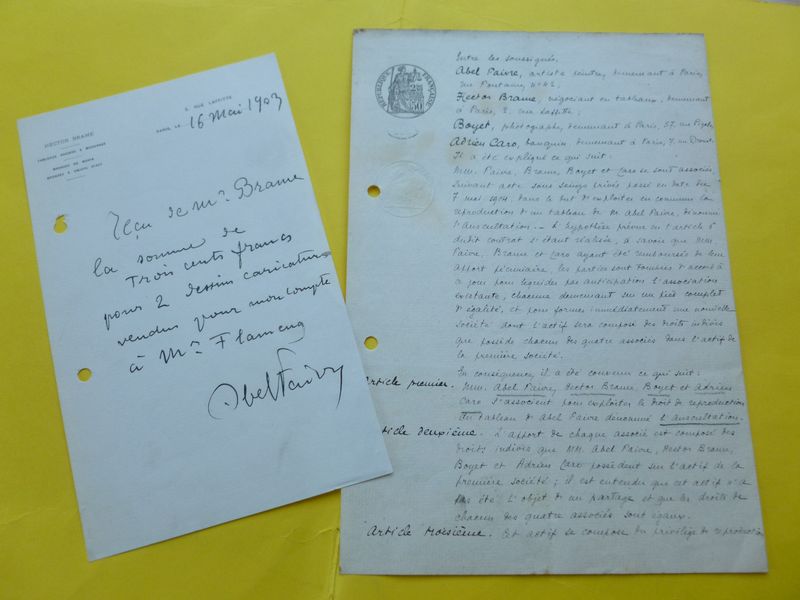 2, RUE LAFFITTE
PARIS, LE 16 Mai 1903
HECTOR BRAME
TABLEAUX ANCIENS & MODERNES
Reçu de Mr Brame
la somme de
Trois cents francs
pour 2 dessins caricatures
vendus pour mon compte
à Mr Flameng
Abel Faivre
RÉPUBLIQUE FRANÇAISE
Entre les soussignés,
Abel Faivre, artiste peintre, demeurant à Paris,
rue Fontaine, n° 42,
Hector Brame, négociant en tableaux, demeurant
à Paris, 2, rue Laffitte;
Boyet, photographe, demeurant à Paris, 57, rue Pigalle,
Adrien Caro, banquier, demeurant à Paris, 7, rue Drouot.
Il a été expliqué ce qui suit:
MM. Faivre, Brame, Boyet et Caro se sont associés,
suivant acte sous seings privés passé en date du
7 mai 1904, dans le but d'exploiter en commun la
reproduction d'un tableau de M. Abel Faivre, dénommé
l'Auscultation. - L'hypothèse prévue en l'article 6
dudit contrat s'étant réalisée, à savoir que MM.
Faivre, Brame et Caro ayant été remboursés de leur
apport pécuniaire, les parties sont tombées d'accord à
ce jour pour liquider par anticipation l'association
existante, chacun demeurant sur un pied complet
d'égalité, et pour former immédiatement une nouvelle
société dont l'actif sera composé des droits indivis
que possède chacun des quatre associés dans l'actif de
la première société.
En conséquence, il a été convenu ce qui suit:
Article premier. MM. Abel Faivre, Hector Brame, Boyet et Adrien
Caro s'associent pour exploiter le droit de reproduction
du tableau d'Abel Faivre dénommé l'Auscultation.
ticle deuxième. L'apport de chaque associé est composé des
droits indivis que MM. Abel Faivre, Hector Brame,
Boyet et Adrien Caro possèdent sur l'actif de la
première société; il est entendu que cet actif n'a
pas été l'objet d'un partage et que les droits de
chacun des quatre associés sont égaux.
Article troisième. Cet actif se compose du privilège de reproduction